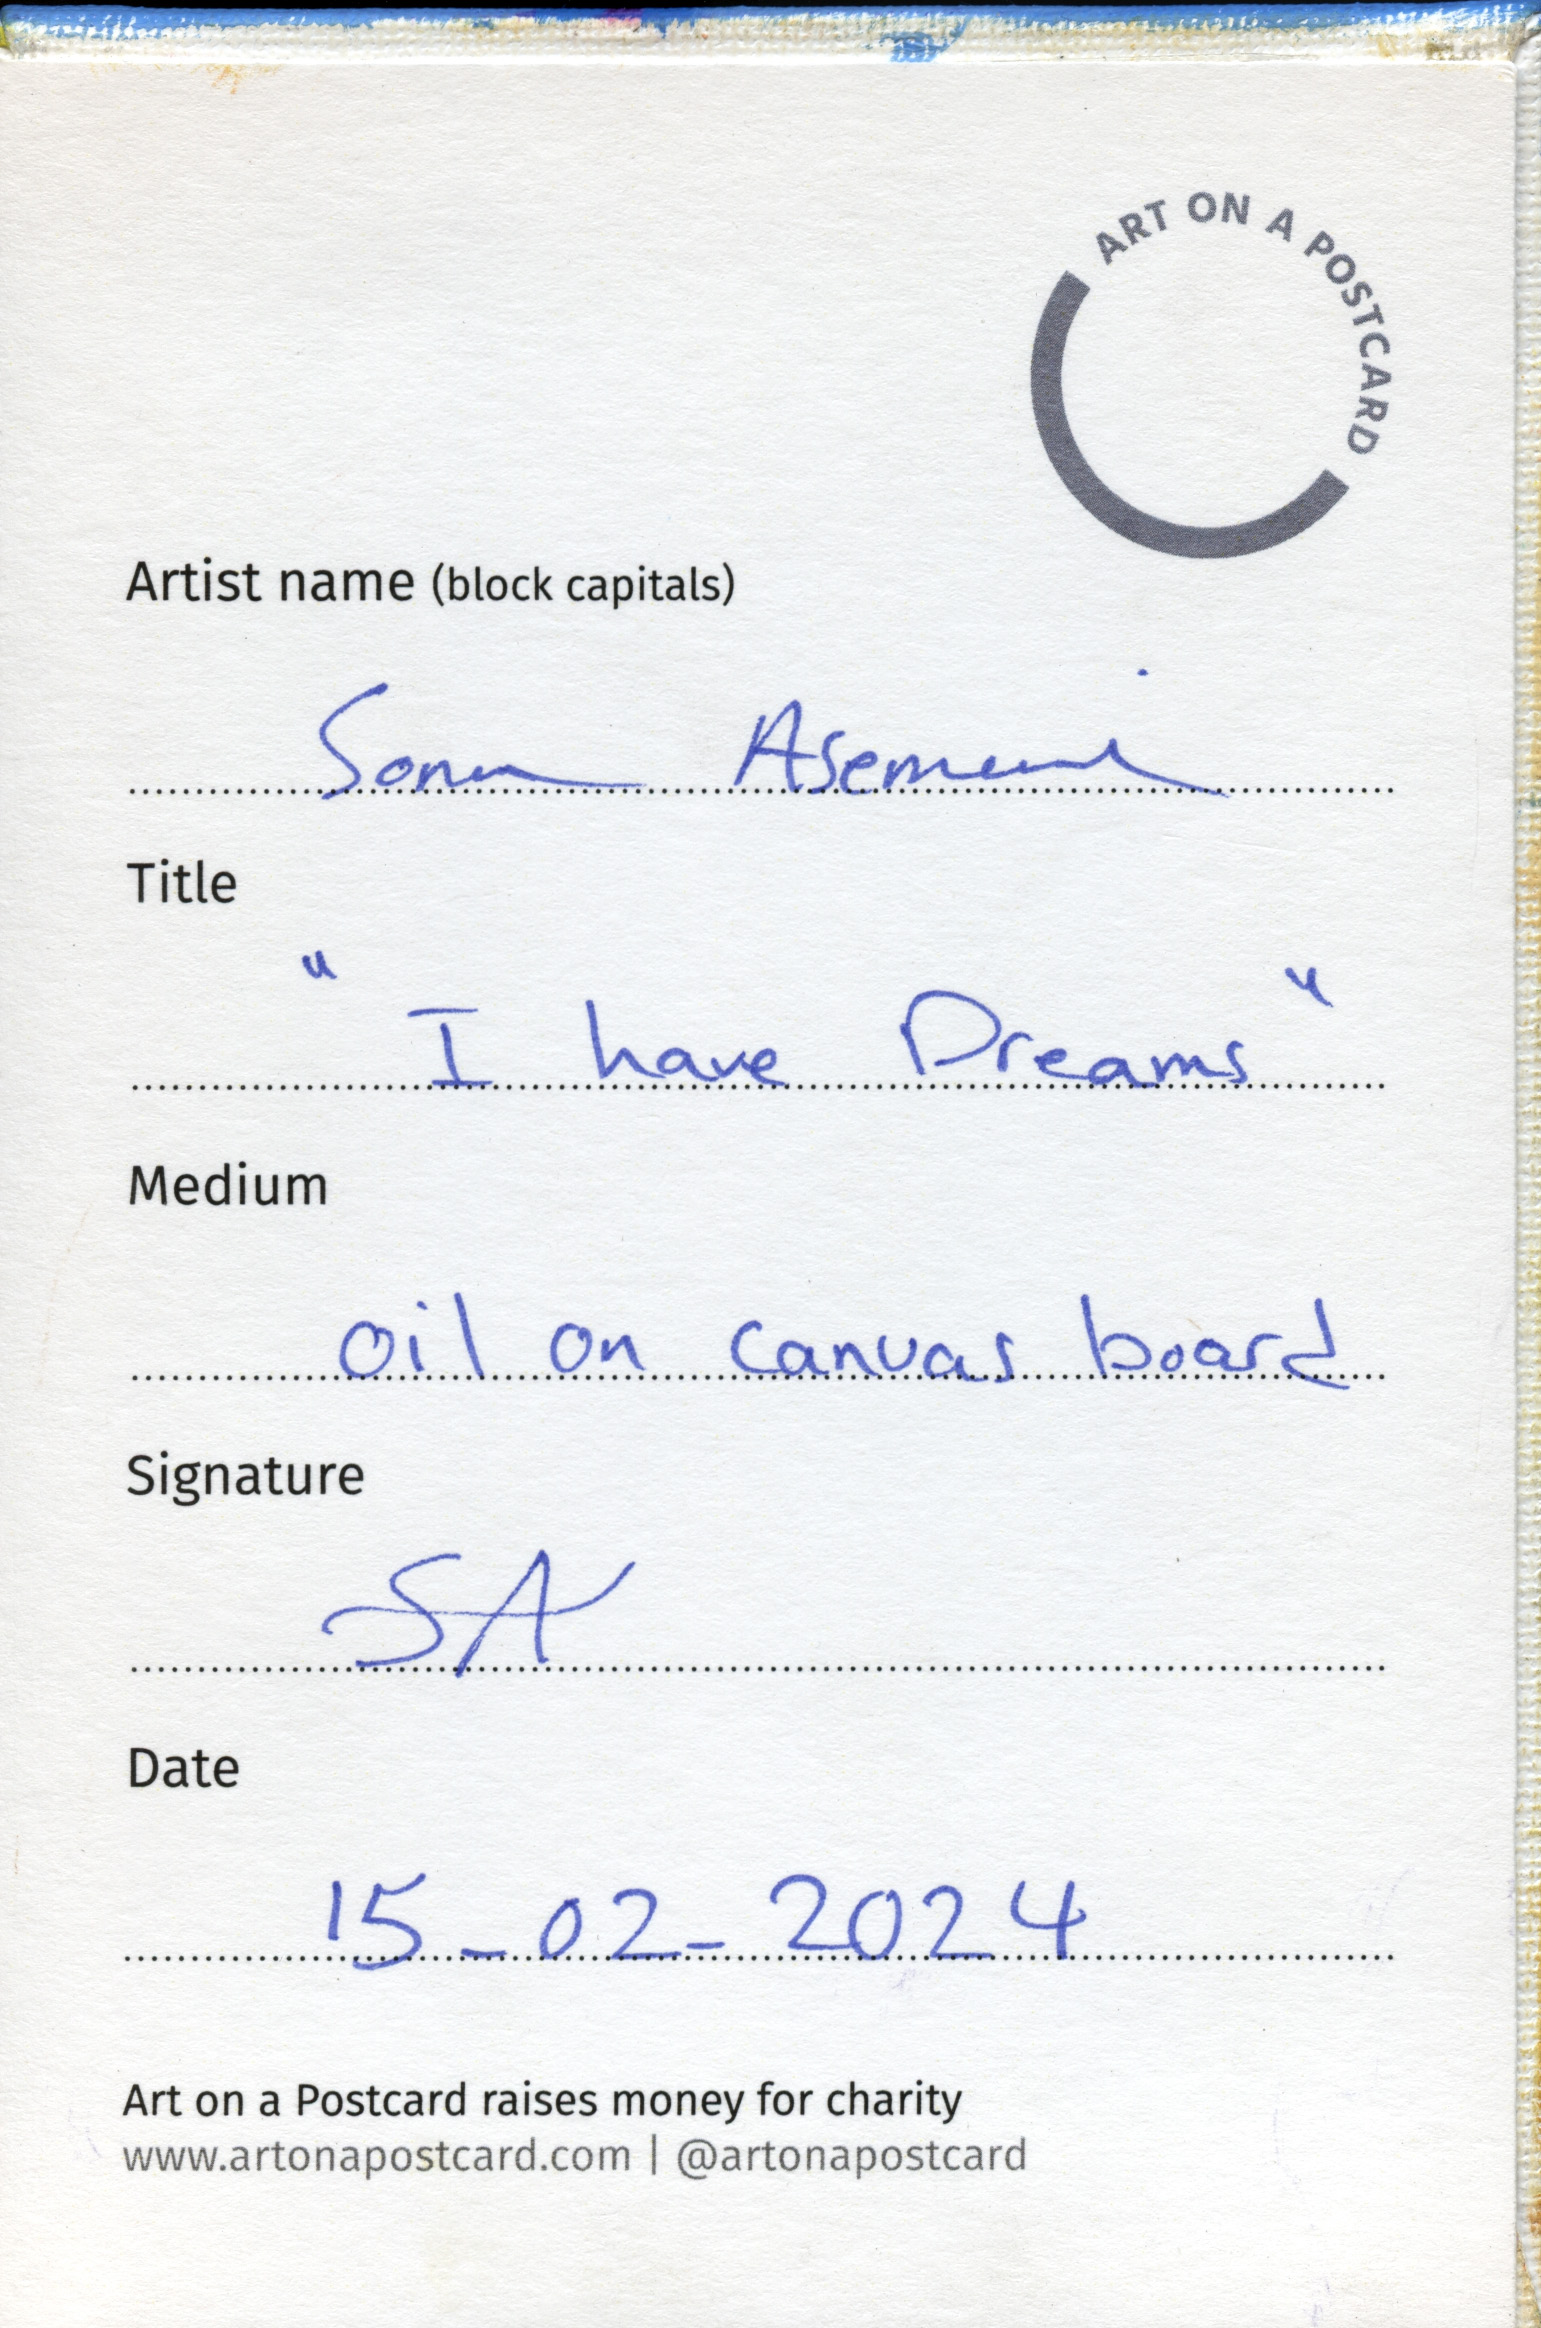 ART ON A POSTCARD
Artist name (block capitals)
Title
" I have Dreams "
Medium
oil on canvas board
Signature
SA
Date
15-02-2024
Art on a Postcard raises money for charity
www.artonapostcard.com | @artonapostcard